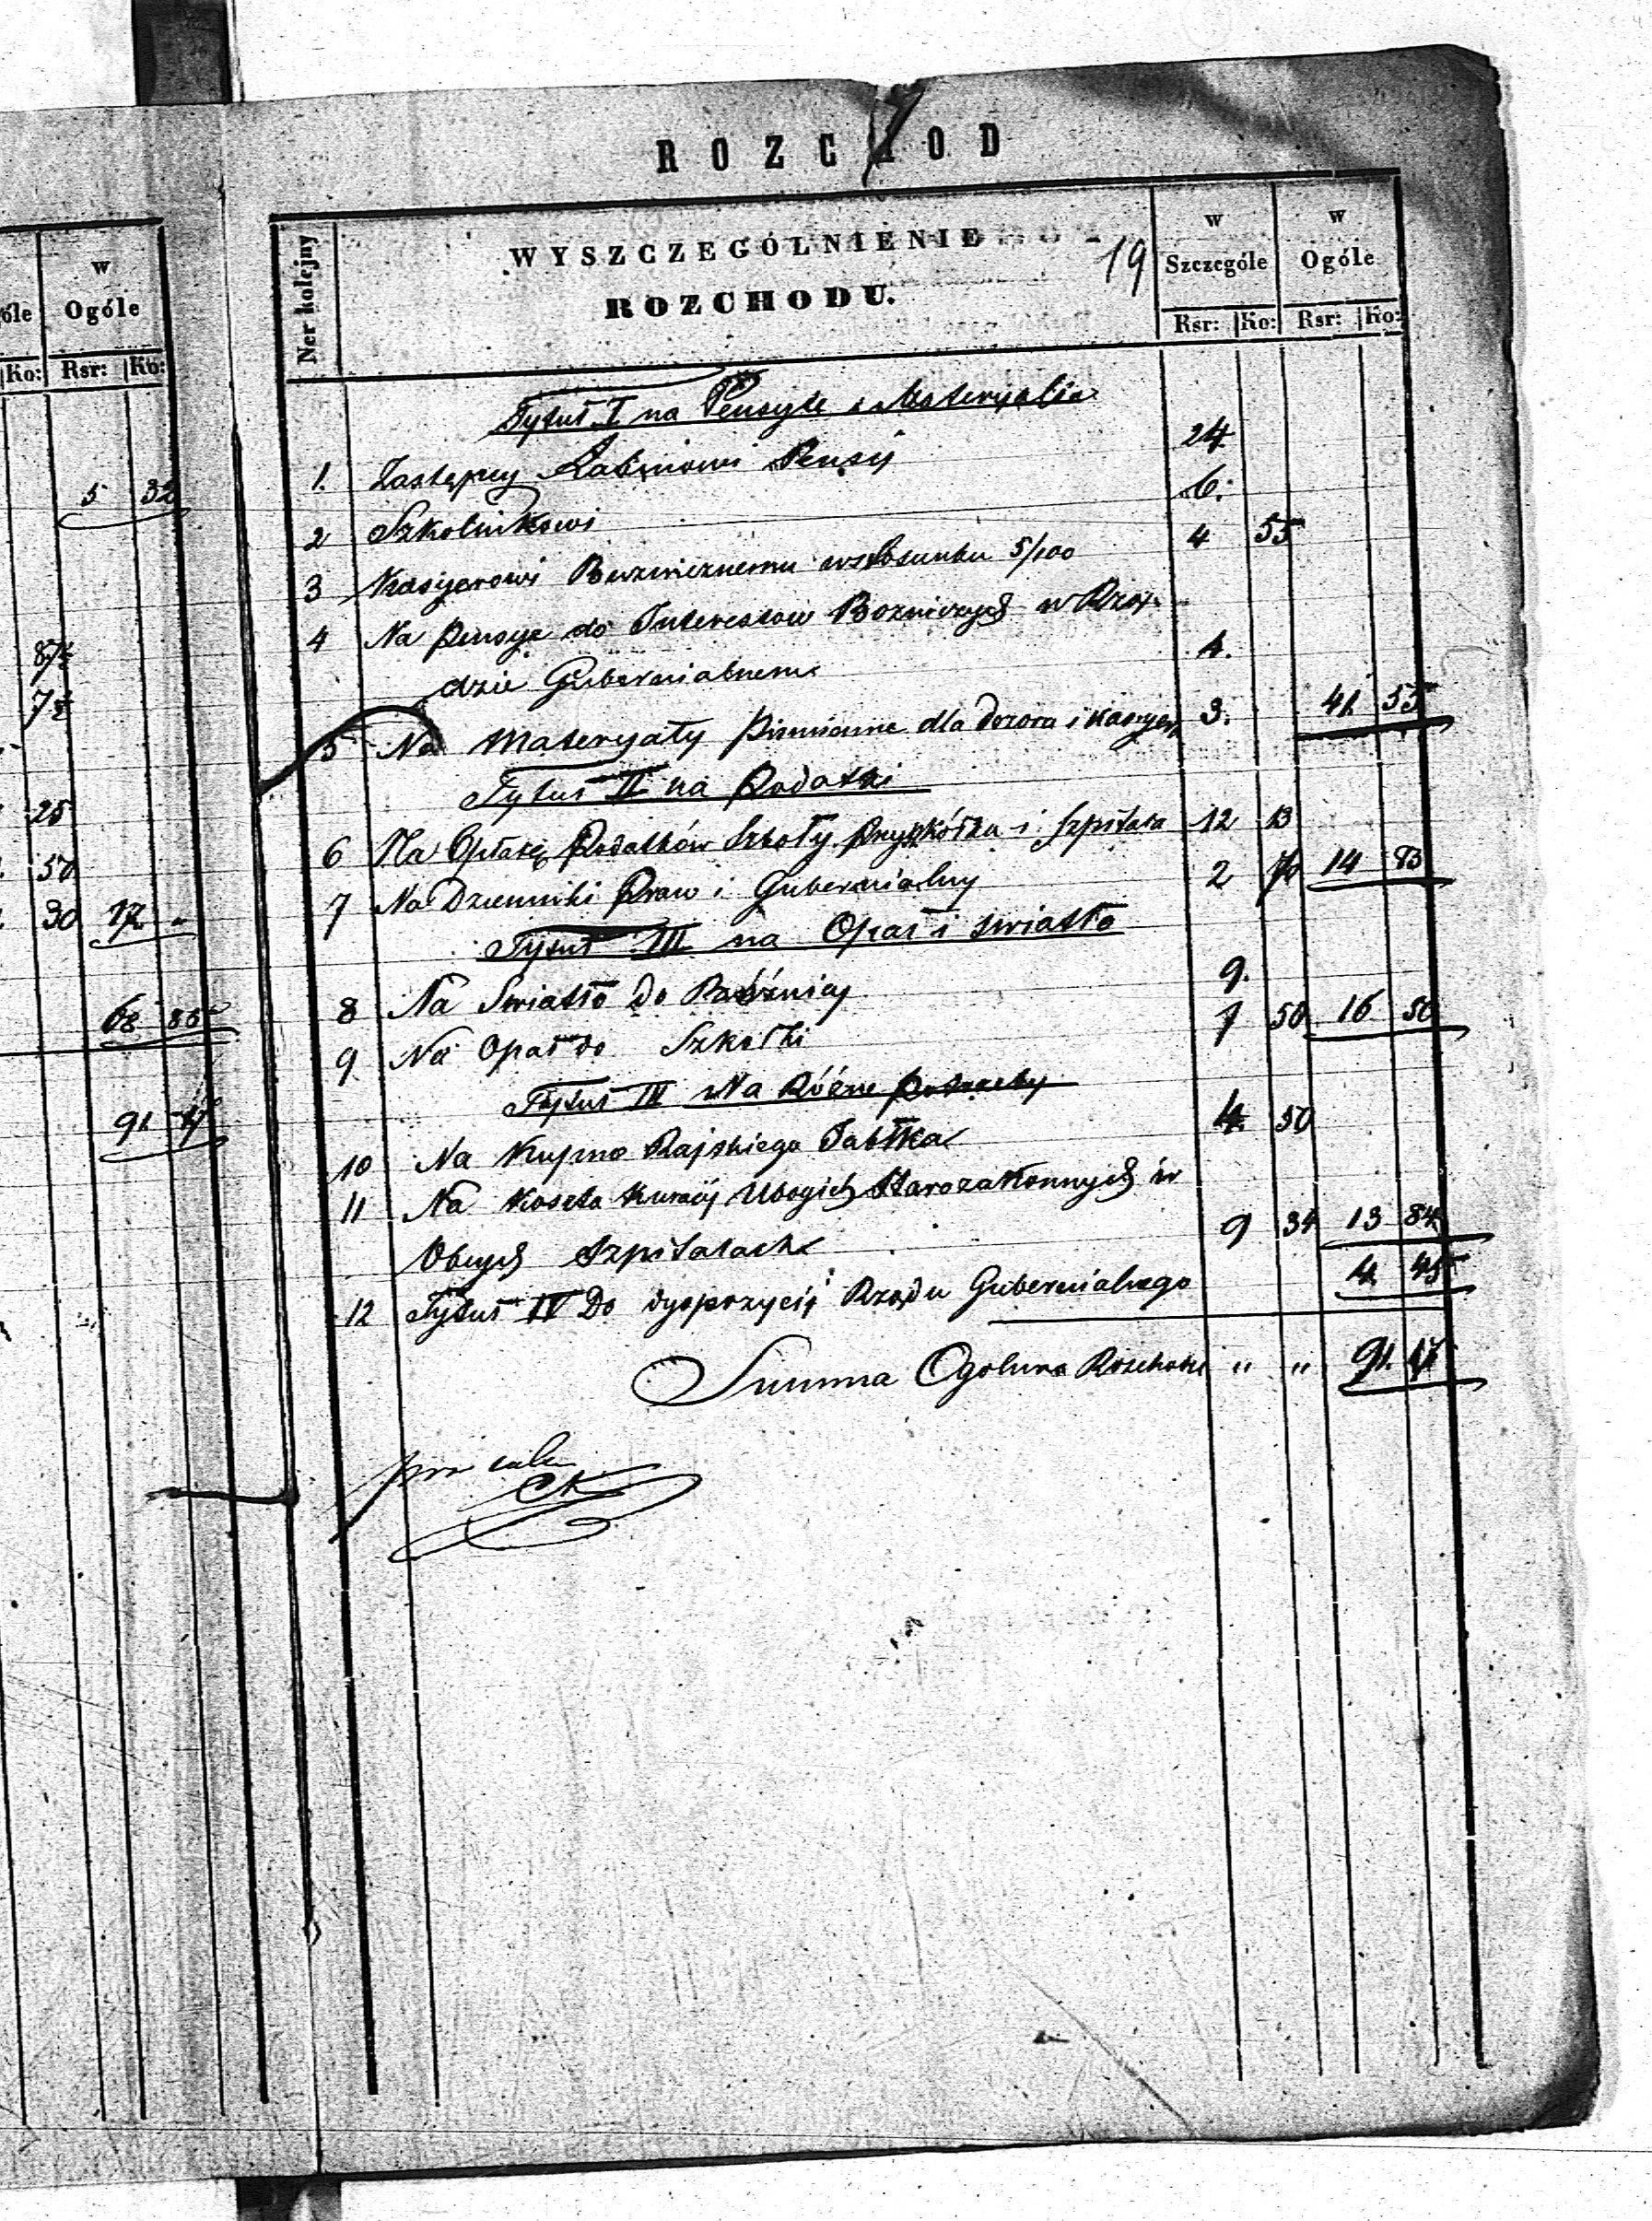 w
Ogóle
óle
Ko: Rsr: Ko:
5 32
87½
7½
25
50
30 17 "
68 85
91 17
ROZCHOD
Ner kolejny
WYSZCZEGÓLNIENIE
ROZCHODU.
19
w
Szczególe
w
Ogóle
Rsr: Ko: Rsr: Ko:
Tytuł I na Pensyje i Materyalia
1. Zastępcy Rabinowi Pensyi 24
2 Szkolnikowi 6.
3 Kasyerowi Bużnicznemu wstosunku 5/100 4 55
4 Na pensye do Interessow Bozniczych w Rzą-
dzie Gubernialnem 4.
5 Na Materyały piśmienne dla Dozoru i Kasyera 3. 41. 55
Tytuł II na Podatki
6 Na Opłatę Podatków Szkoły Przyszkółku i szpitala 12 13
7 Na Dzienniki Praw i Gubernialny 2 70 14 83
Tytuł III na Opał i swiatło
8 Na Swiatło do Bóżnicy 9.
9 Na Opał do Szkółki 7 50 16 50
Tytuł IV Na Różne potrzeby
10 Na Kupno Rajskiego Jabłka 4. 50
11 Na koszta kuracyi Ubogich Starozakonnych w
Obcych Szpitalach 9 34 13 84
12 Tytuł IV Do dyspozycij Rządu Gubernialnego 4. 45
Summa Ogolna Rozchodu " " 91. 17